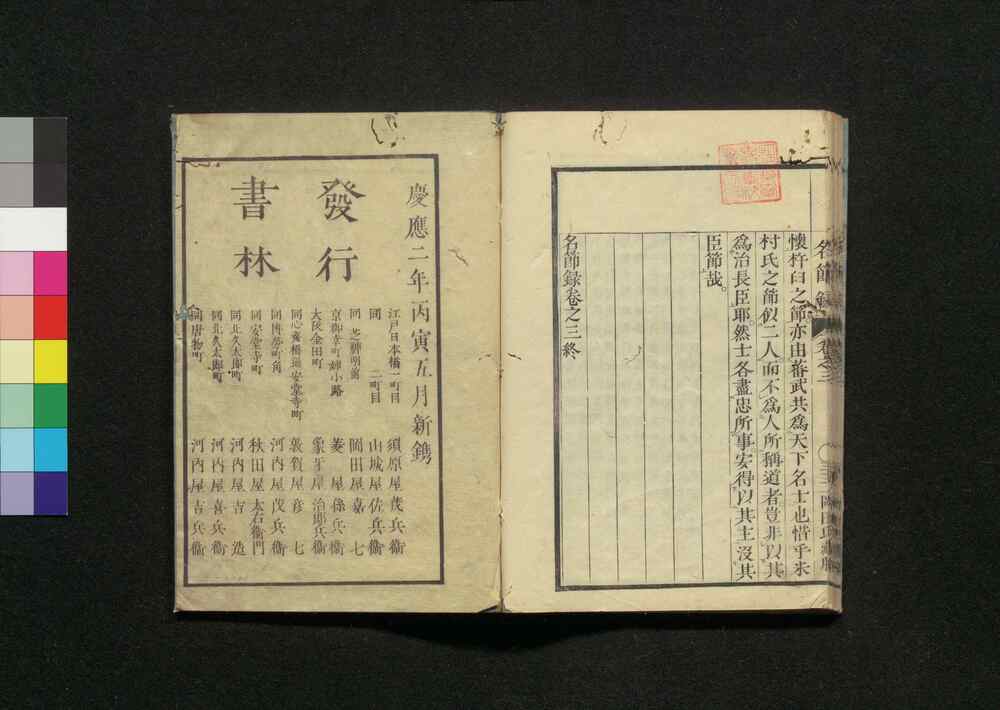 懷杵臼之節亦由蕃武共爲天下名士也惜乎米
村氏之節似二人而不爲人所稱道者豈非以其
爲治長臣耶然士各盡忠所事安得以其主沒其
臣節哉。
名節錄卷之三終
名節錄 卷之三
慶應二年丙寅五月新鐫
發行
書林
江戸日本橋一町目 須原屋茂兵衞
同 二町目 山城屋佐兵衞
同 芝神明前 岡田屋嘉七
京御幸町姉小路 菱屋孫兵衞
大阪金田町 象牙屋治郎兵衞
同心斎橋通安堂寺町 敦賀屋彦七
同博勞町角 河内屋茂兵衞
同安堂寺町 秋田屋太右衞門
同北久太郎町 河内屋吉造
同北久太郎町 河内屋喜兵衞
同唐物町 河内屋吉兵衞